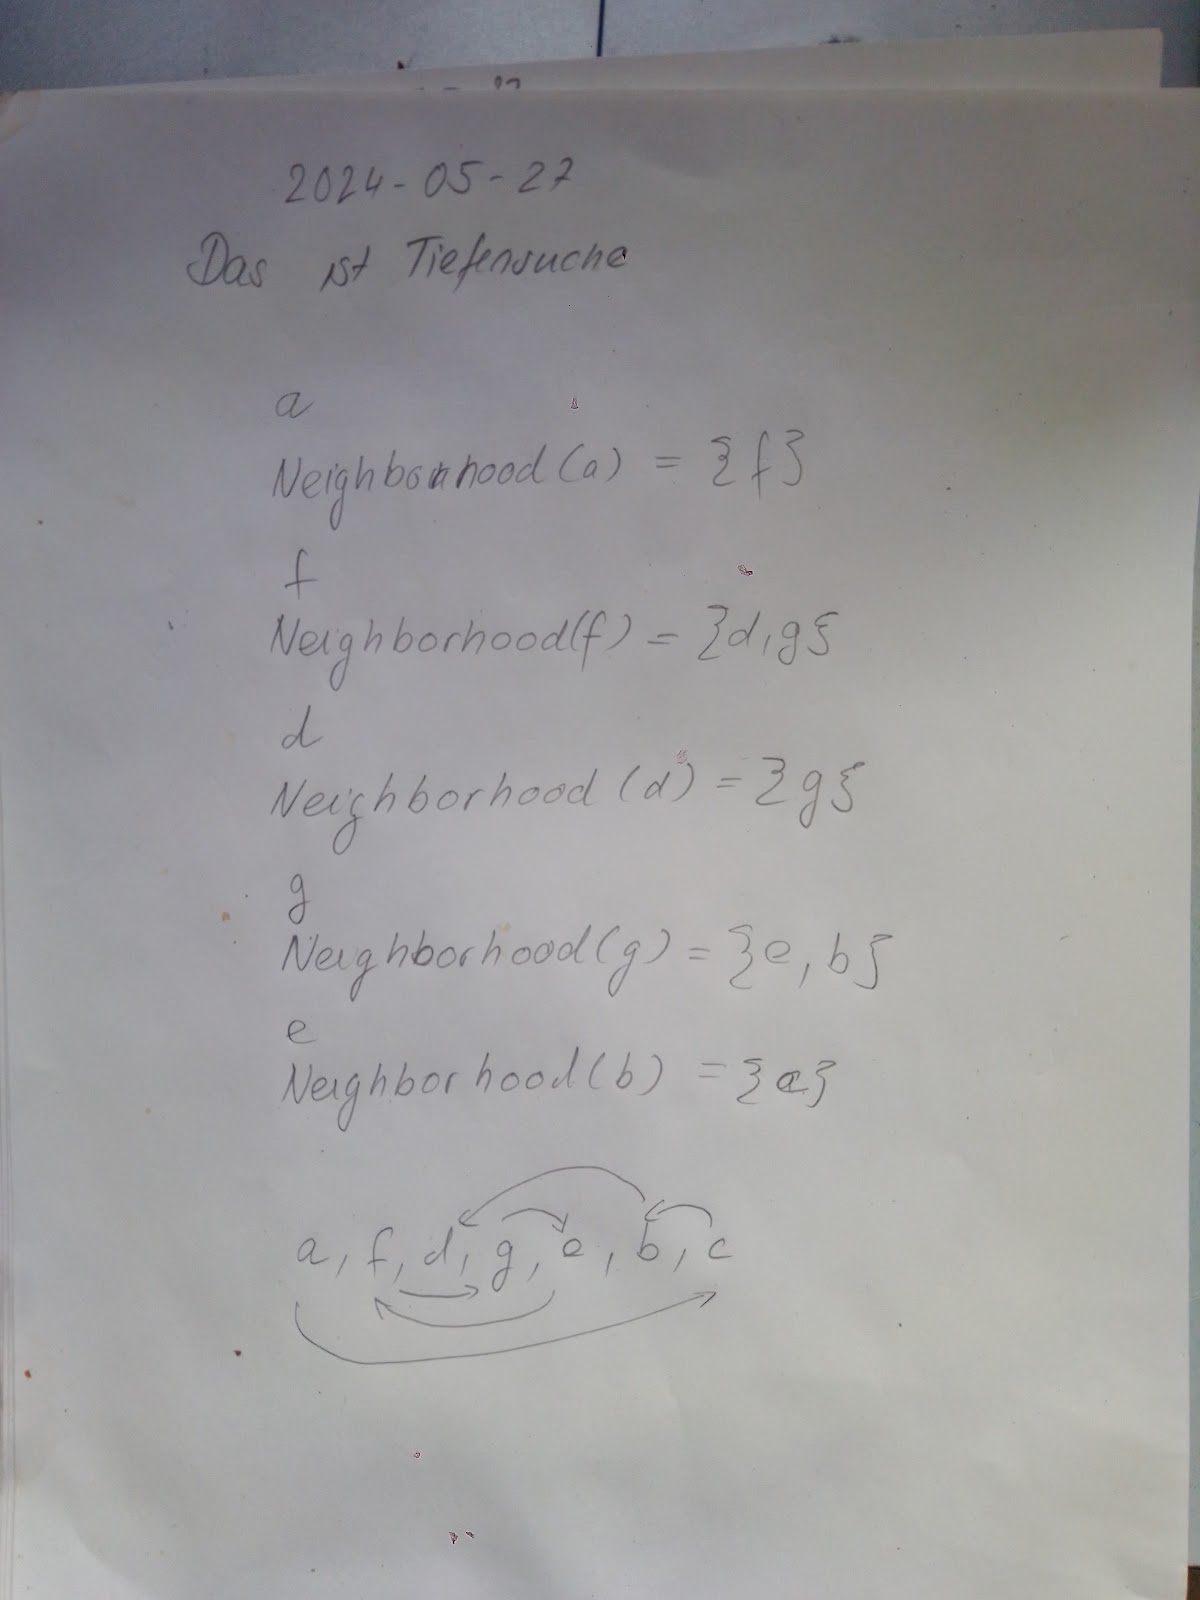 2024-05-27
Das ist Tiefensuche
a
Neighborhood(a) = {f}
f
Neighborhood(f) = {d,g}
d
Neighborhood (d) = {g}
g
Neighborhood(g) = {e, b}
e
Neighborhood(b) = {a}
a, f, d, g, e, b, c